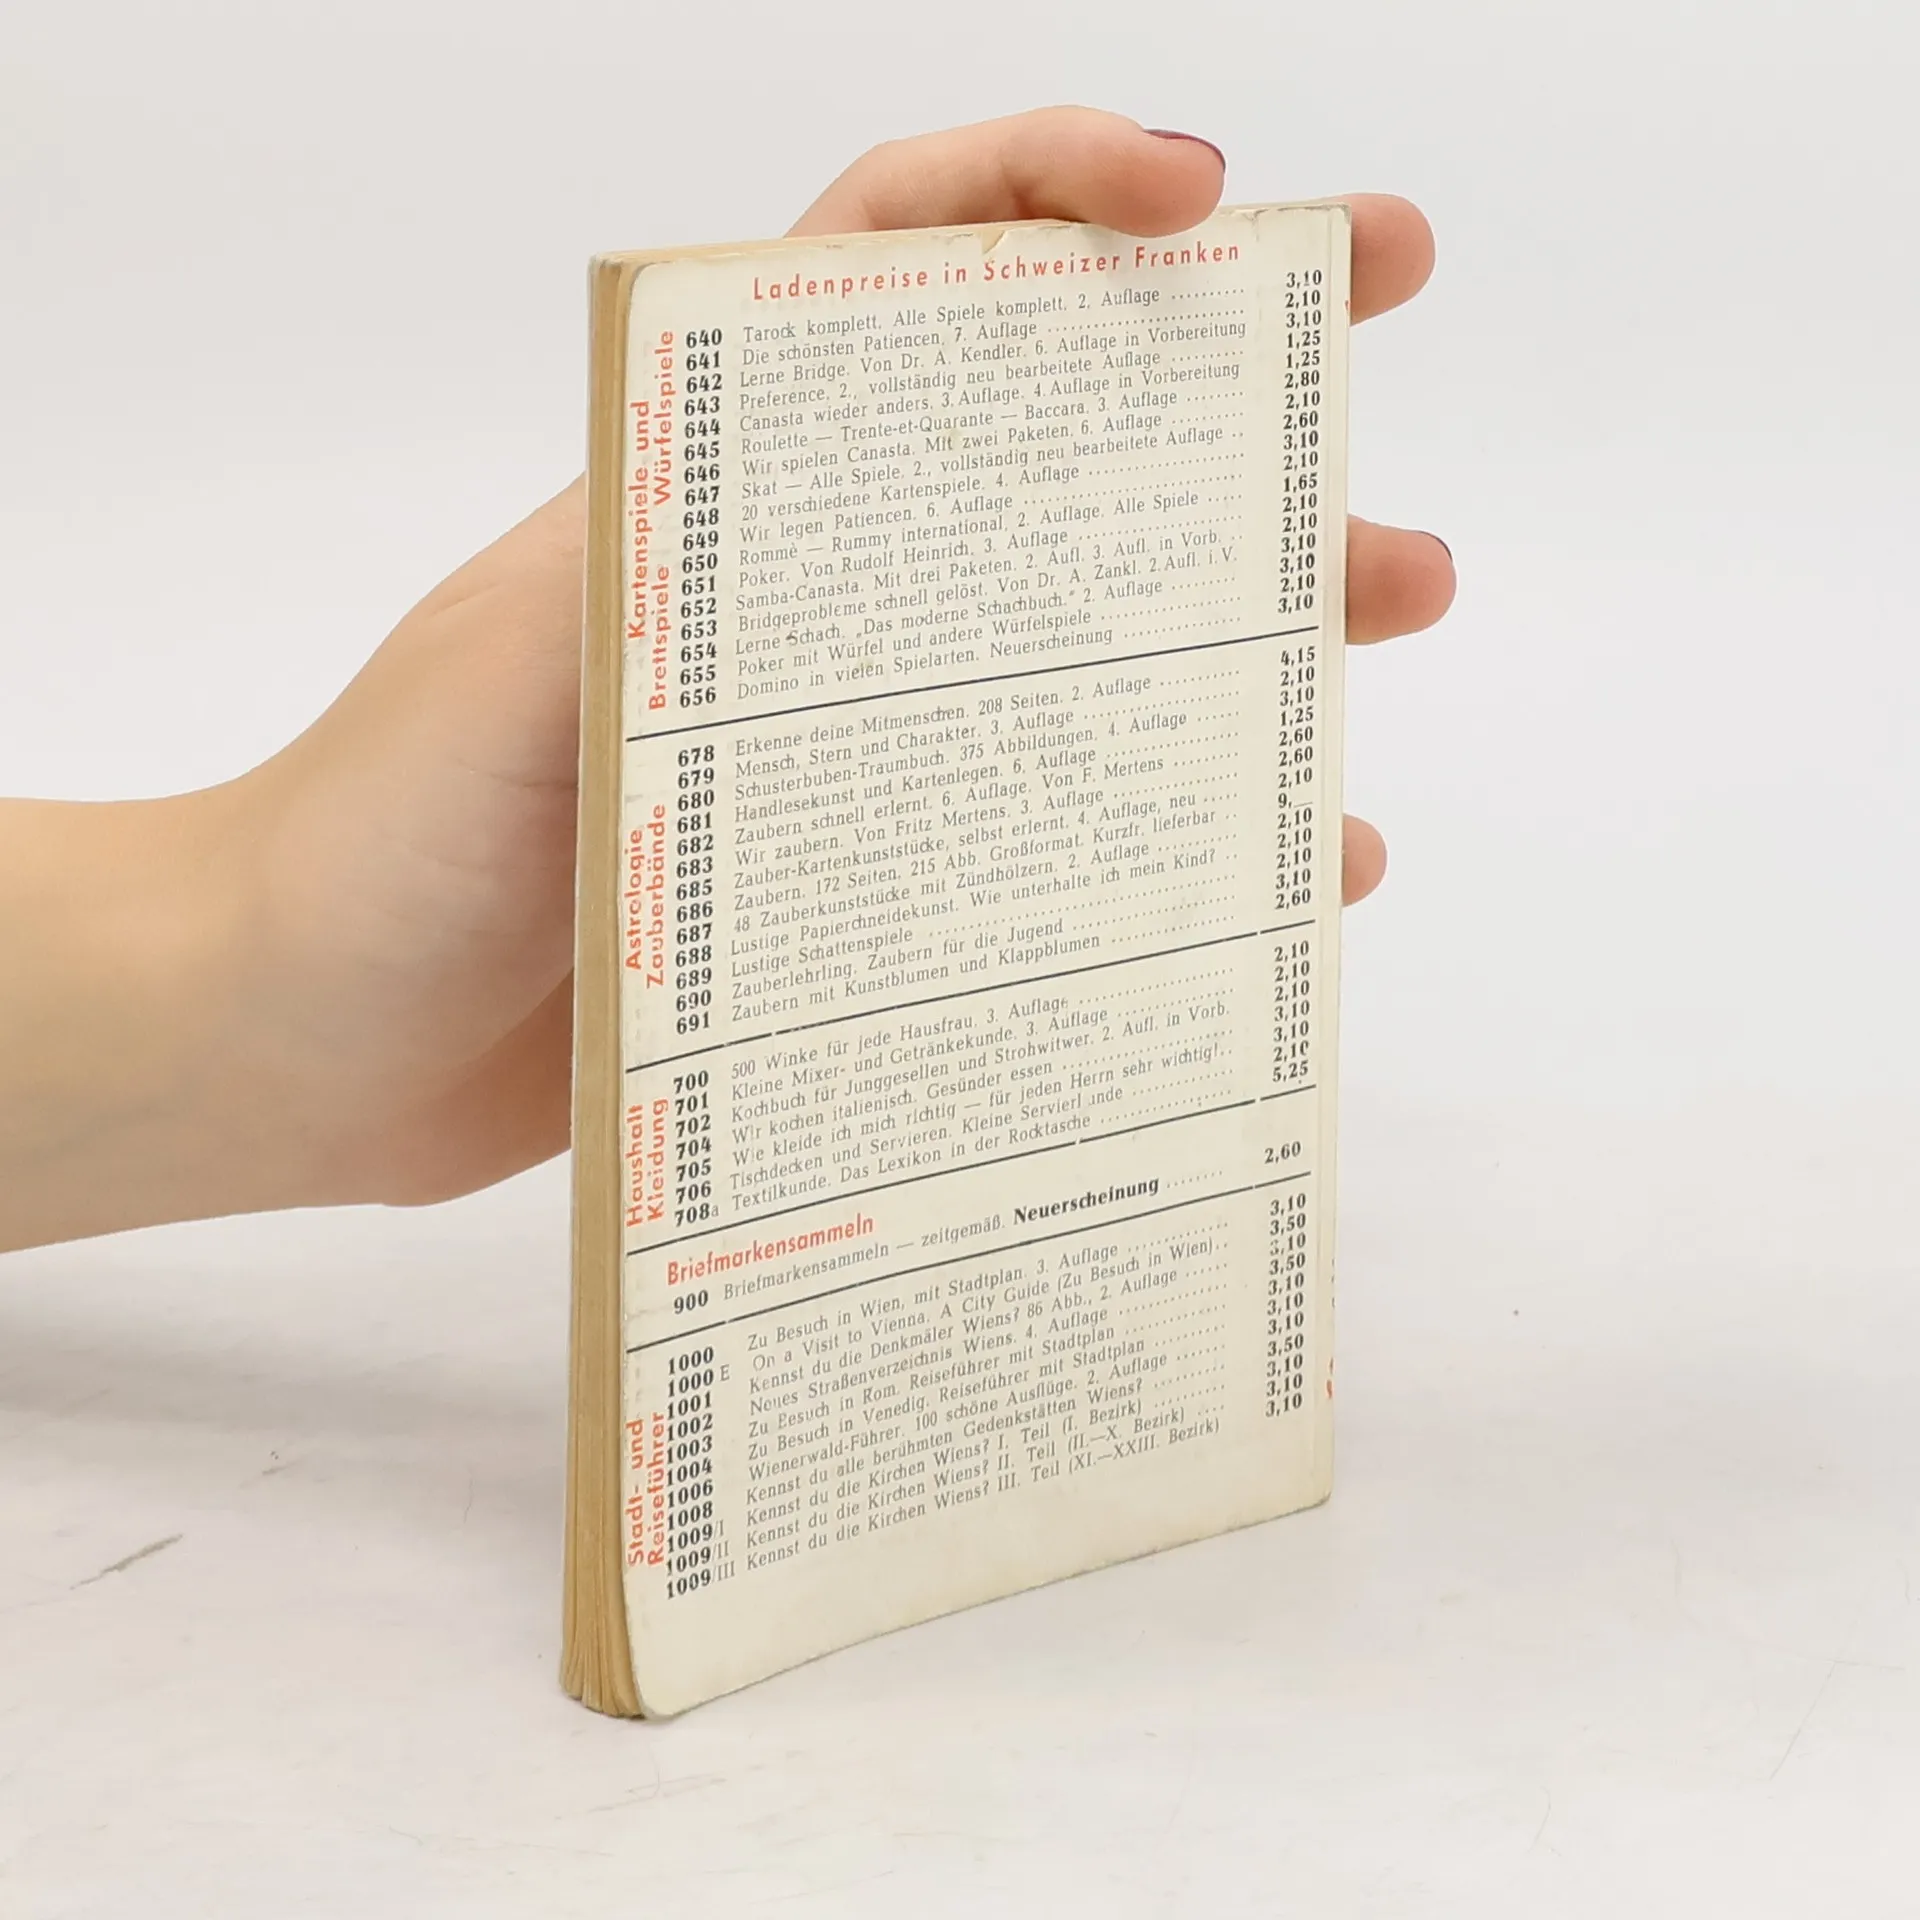 Ladenpreise in Schweizer Franken
Kartenspiele und Würfelspiele
Brettspiele
640 Tarock komplett. Alle Spiele komplett. 2. Auflage .......... 3,10
641 Die schönsten Patiencen. 7. Auflage .......... 2,10
642 Lerne Bridge. Von Dr. A. Kendler. 6. Auflage in Vorbereitung 3,10
643 Preference. 2., vollständig neu bearbeitete Auflage .......... 1,25
644 Canasta wieder anders. 3. Auflage. 4. Auflage in Vorbereitung 1,25
645 Roulette — Trente-et-Quarante — Baccara. 3. Auflage ........ 2,80
646 Wir spielen Canasta. Mit zwei Paketen. 6. Auflage .......... 2,10
647 Skat — Alle Spiele. 2., vollständig neu bearbeitete Auflage .. 2,60
648 20 verschiedene Kartenspiele. 4. Auflage .......... 3,10
649 Wir legen Patiencen. 6. Auflage .......... 2,10
650 Rommè — Rummy international. 2. Auflage. Alle Spiele ..... 1,65
651 Poker. Von Rudolf Heinrich. 3. Auflage .......... 2,10
652 Samba-Canasta. Mit drei Paketen. 2. Aufl. 3. Aufl. in Vorb. .. 2,10
653 Bridgeprobleme schnell gelöst. Von Dr. A. Zankl. 2. Aufl. i. V. 3,10
654 Lerne Schach. „Das moderne Schachbuch." 2. Auflage ........ 3,10
655 Poker mit Würfel und andere Würfelspiele .......... 2,10
656 Domino in vielen Spielarten. Neuerscheinung .......... 3,10
Astrologie
Zauberbände
678 Erkenne deine Mitmenschen. 208 Seiten. 2. Auflage .......... 4,15
679 Mensch, Stern und Charakter. 3. Auflage .......... 2,10
680 Schusterbuben-Traumbuch. 375 Abbildungen. 4. Auflage ...... 3,10
681 Handlesekunst und Kartenlegen. 6. Auflage .......... 1,25
682 Zaubern schnell erlernt. 6. Auflage. Von F. Mertens ......... 2,60
683 Wir zaubern. Von Fritz Mertens. 3. Auflage .......... 2,60
685 Zauber-Kartenkunststücke, selbst erlernt. 4. Auflage, neu ..... 2,10
686 Zaubern. 172 Seiten. 215 Abb. Großformat. Kurzfr. lieferbar .. 9,—
687 48 Zauberkunststücke mit Zündhölzern. 2. Auflage .......... 2,10
688 Lustige Papierchneidekunst. Wie unterhalte ich mein Kind? .. 2,10
689 Lustige Schattenspiele .......... 2,10
690 Zauberlehrling. Zaubern für die Jugend .......... 3,10
691 Zaubern mit Kunstblumen und Klappblumen .......... 2,60
Haushalt
Kleidung
700 500 Winke für jede Hausfrau. 3. Auflage .......... 2,10
701 Kleine Mixer- und Getränkekunde. 3. Auflage .......... 2,10
702 Kochbuch für Junggesellen und Strohwitwer. 2. Aufl. in Vorb. 2,10
704 Wir kochen italienisch. Gesünder essen .......... 3,10
705 Wie kleide ich mich richtig — für jeden Herrn sehr wichtig!.. 3,10
706 Tischdecken und Servieren. Kleine Servierk unde .......... 2,10
708a Textilkunde. Das Lexikon in der Rocktasche .......... 5,25
Briefmarkensammeln
900 Briefmarkensammeln — zeitgemäß. Neuerscheinung ........ 2,60
Stadt- und
Reiseführer
1000 Zu Besuch in Wien, mit Stadtplan. 3. Auflage .......... 3,10
1000 E On a Visit to Vienna. A City Guide (Zu Besuch in Wien).. 3,50
1001 Kennst du die Denkmäler Wiens? 86 Abb., 2. Auflage ...... 3,10
1002 Neues Straßenverzeichnis Wiens. 4. Auflage .......... 3,50
1003 Zu Besuch in Rom. Reiseführer mit Stadtplan .......... 3,10
1004 Zu Besuch in Venedig. Reiseführer mit Stadtplan .......... 3,10
1006 Wienerwald-Führer. 100 schöne Ausflüge. 2. Auflage ....... 3,10
1008 Kennst du alle berühmten Gedenkstätten Wiens? .......... 3,50
1009/I Kennst du die Kirchen Wiens? I. Teil (I. Bezirk) .......... 3,10
1009/II Kennst du die Kirchen Wiens? II. Teil (II.—X. Bezirk) .... 3,10
1009/III Kennst du die Kirchen Wiens? III. Teil (XI.—XXIII. Bezirk) 3,10